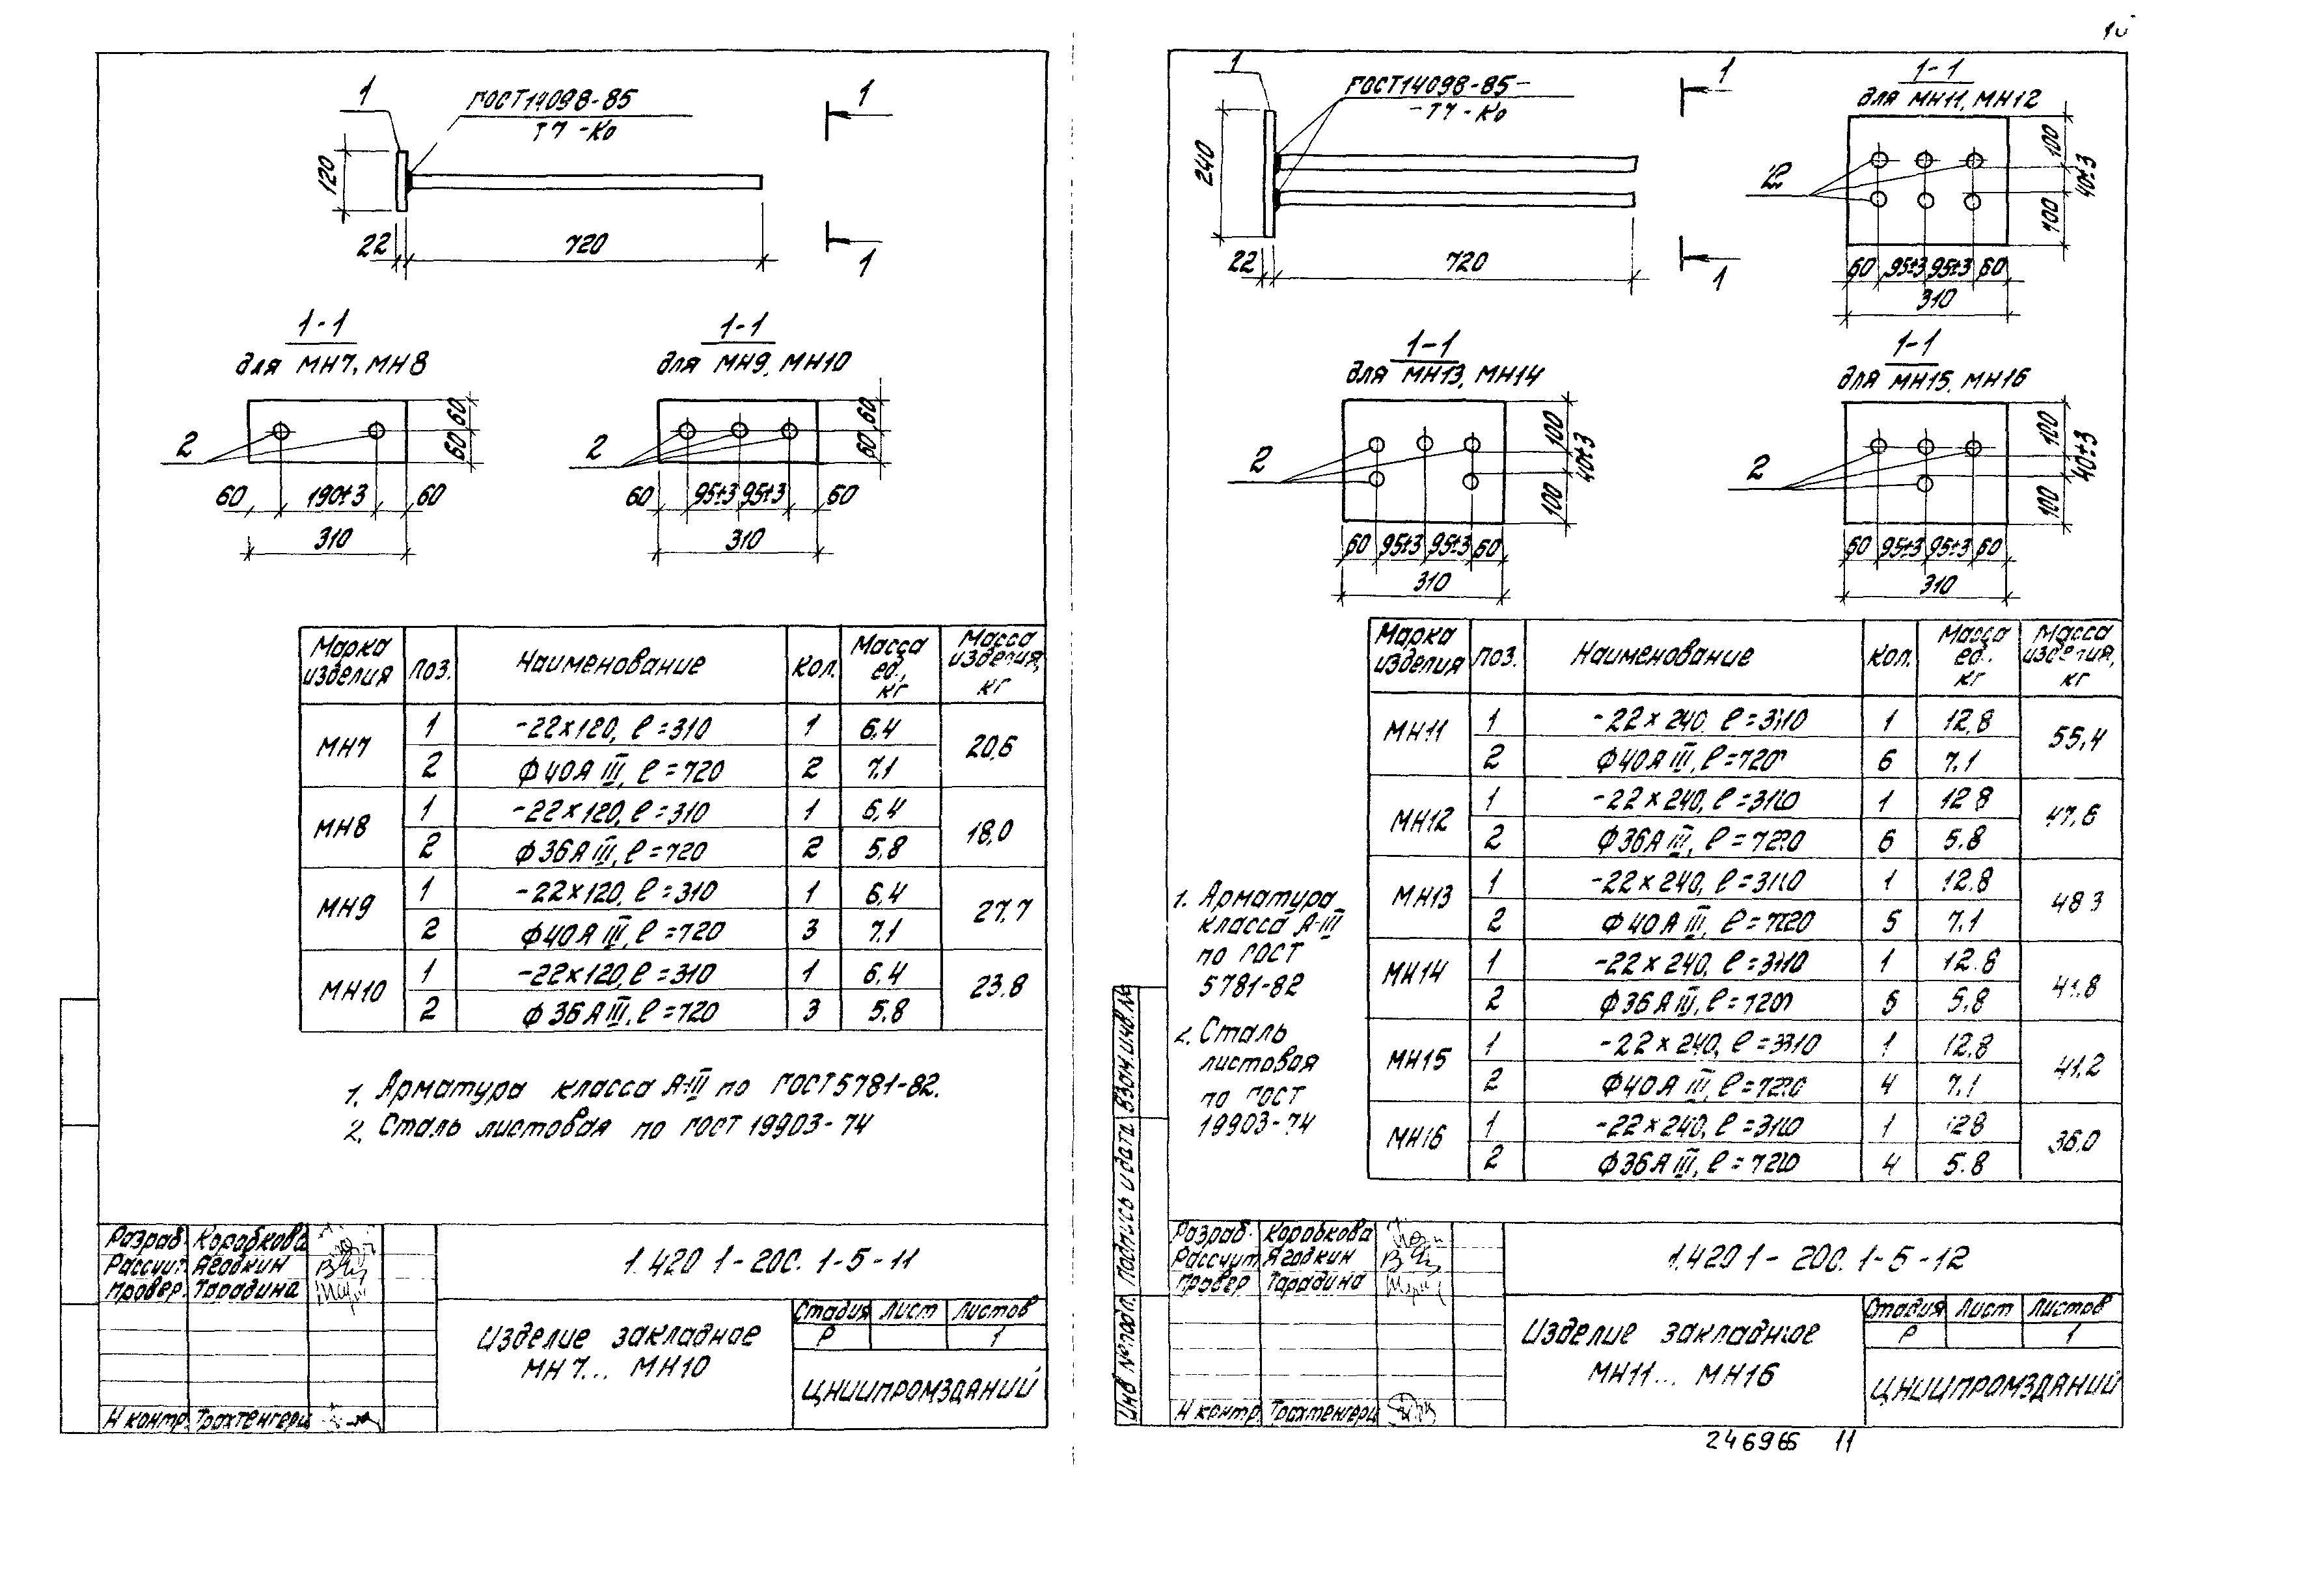 10
1
ГОСТ14098-85
Т7 -Ко
1
120
22
720
1
1-1
для МН7, МН8
2
60
60
60
190±3
60
310
1-1
для МН9, МН10
2
60
60
60
95±3
95±3
60
310
Марка изделия
поз.
Наименование
кол.
Масса ед., кг
Масса изделия, кг
МН7
1
-22×120, ℓ=310
1
6,4
20,6
2
Ф40А III, ℓ=720
2
7,1
МН8
1
-22×120, ℓ=310
1
6,4
18,0
2
Ф36А III, ℓ=720
2
5,8
МН9
1
-22×120, ℓ=310
1
6,4
27,7
2
Ф40А III, ℓ=720
3
7,1
МН10
1
-22×120, ℓ=310
1
6,4
23,8
2
Ф36А III, ℓ=720
3
5,8
1. Арматура класса А-III по ГОСТ5781-82.
2. Сталь листовая по ГОСТ 19903-74
Разраб. Коробкова
Рассчит. Ягодкин
Провер. Тарадина
Н контр. Трахтенгерц
1.420 1-20с. 1-5-11
Изделие закладное
МН7... МН10
Стадия Лист Листов
Р 1
ЦНИИПРОМЗДАНИЙ
1
ГОСТ14098-85-
-Т7-Ко
1
240
22
720
1
1-1
для МН11, МН12
2
100
40±3
100
60
95±3
95±3
60
310
1-1
для МН13, МН14
2
100
40±3
100
60
95±3
95±3
60
310
1-1
для МН15, МН16
2
100
40±3
100
60
95±3
95±3
60
310
Марка изделия
поз.
Наименование
кол.
Масса ед., кг
Масса изделия, кг
МН11
1
-22×240, ℓ=310
1
12,8
55,4
2
Ф40А III, ℓ=720
6
7,1
МН12
1
-22×240, ℓ=310
1
12,8
47,6
2
Ф36А III, ℓ=720
6
5,8
МН13
1
-22×240, ℓ=310
1
12,8
48,3
2
Ф40А III, ℓ=720
5
7,1
МН14
1
-22×240, ℓ=310
1
12,8
41,8
2
Ф36А III, ℓ=720
5
5,8
МН15
1
-22×240, ℓ=310
1
12,8
41,2
2
Ф40А III, ℓ=720
4
7,1
МН16
1
-22×240, ℓ=310
1
12,8
36,0
2
Ф36А III, ℓ=720
4
5,8
1. Арматура
класса А-III
по ГОСТ
5781-82
2. Сталь
листовая
по ГОСТ
19903-74
Инв №подл. Подпись и дата Взам.инв.№
Разраб. Коробкова
Рассчит. Ягодкин
Провер Тарадина
Н контр. Трахтенгерц
1.420 1-20с. 1-5-12
Изделие закладное
МН11... МН16
Стадия Лист Листов
Р 1
ЦНИИПРОМЗДАНИЙ
11